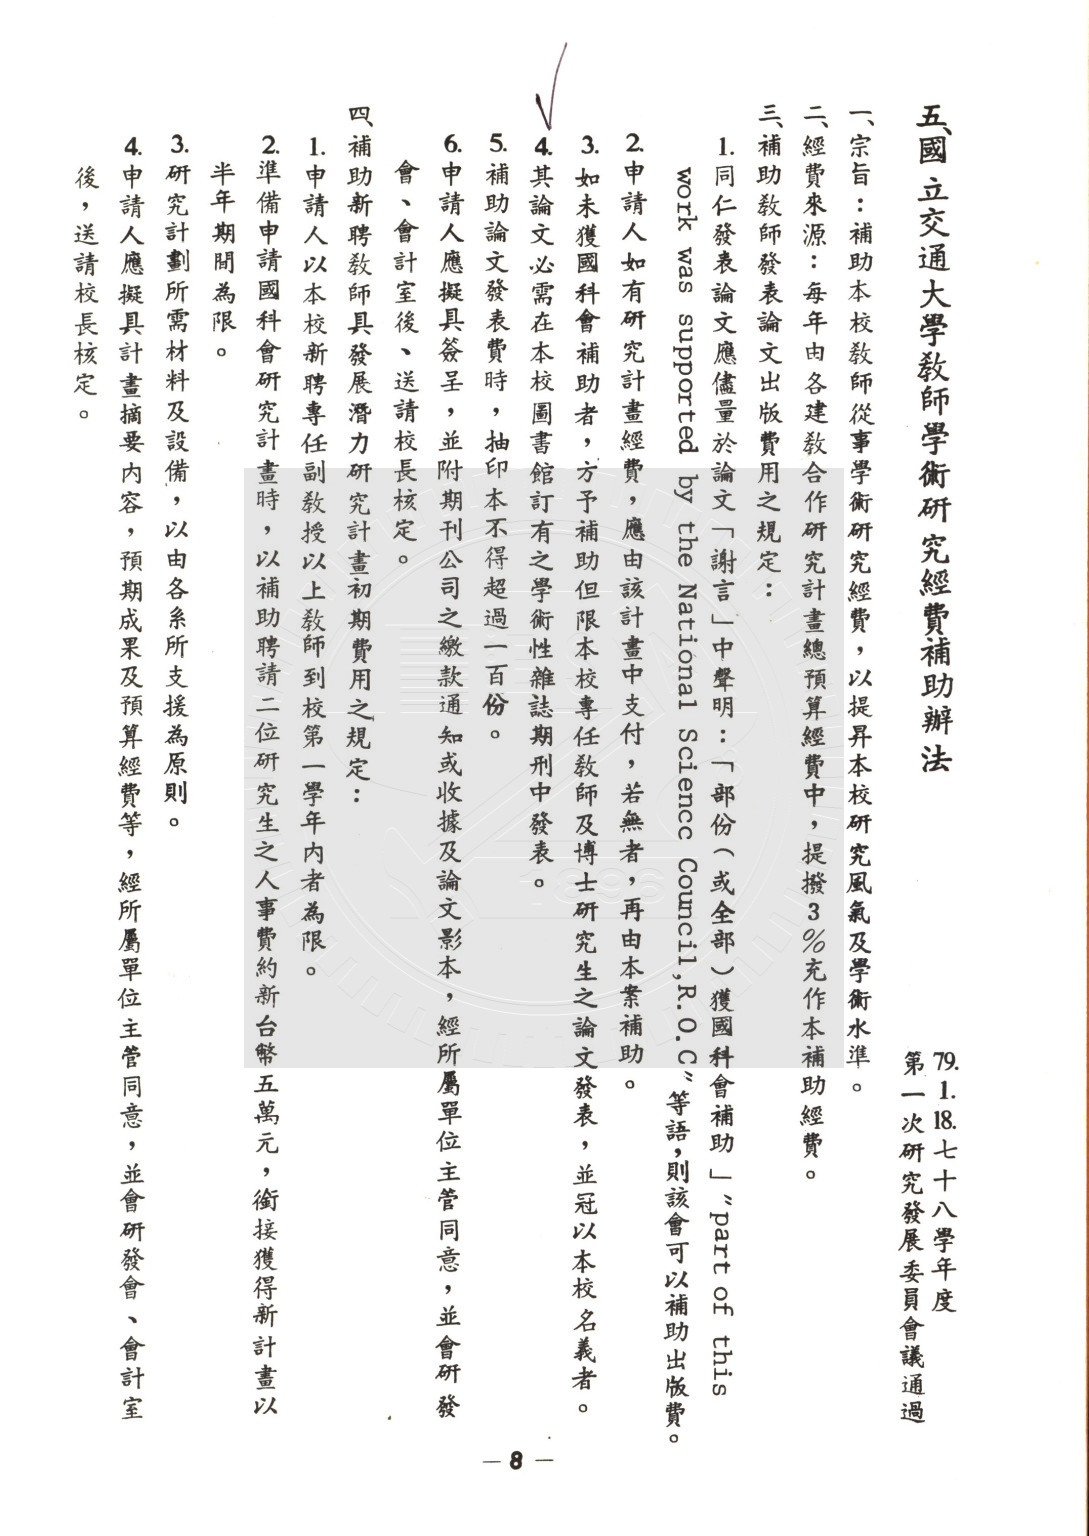 五、國立交通大學教師學術研究經費補助辦法
79. 1. 18. 七十八學年度
第一次研究發展委員會議通過
一、宗旨：補助本校教師從事學術研究經費，以提昇本校研究風氣及學術水準。
二、經費來源：每年由各建教合作研究計畫總預算經費中，提撥3%充作本補助經費。
三、補助教師發表論文出版費用之規定：
1. 同仁發表論文應儘量於論文「謝言」中聲明：「部份（或全部）獲國科會補助」〝part of this
work was supported by the National Science Council,R.O.C〞等語，則該會可以補助出版費。
2. 申請人如有研究計畫經費，應由該計畫中支付，若無者，再由本案補助。
3. 如未獲國科會補助者，方予補助但限本校專任教師及博士研究生之論文發表，並冠以本校名義者。
4. 其論文必需在本校圖書館訂有之學術性雜誌期刑中發表。
5. 補助論文發表費時，抽印本不得超過一百份。
6. 申請人應擬具簽呈，並附期刊公司之繳款通知或收據及論文影本，經所屬單位主管同意，並會研發
會、會計室後、送請校長核定。
四、補助新聘教師具發展潛力研究計畫初期費用之規定：
1. 申請人以本校新聘專任副教授以上教師到校第一學年內者為限。
2. 準備申請國科會研究計畫時，以補助聘請二位研究生之人事費約新台幣五萬元，銜接獲得新計畫以
半年期間為限。
3. 研究計劃所需材料及設備，以由各系所支援為原則。
4. 申請人應擬具計畫摘要內容，預期成果及預算經費等，經所屬單位主管同意，並會研發會、會計室
後，送請校長核定。
— 8 —
1896